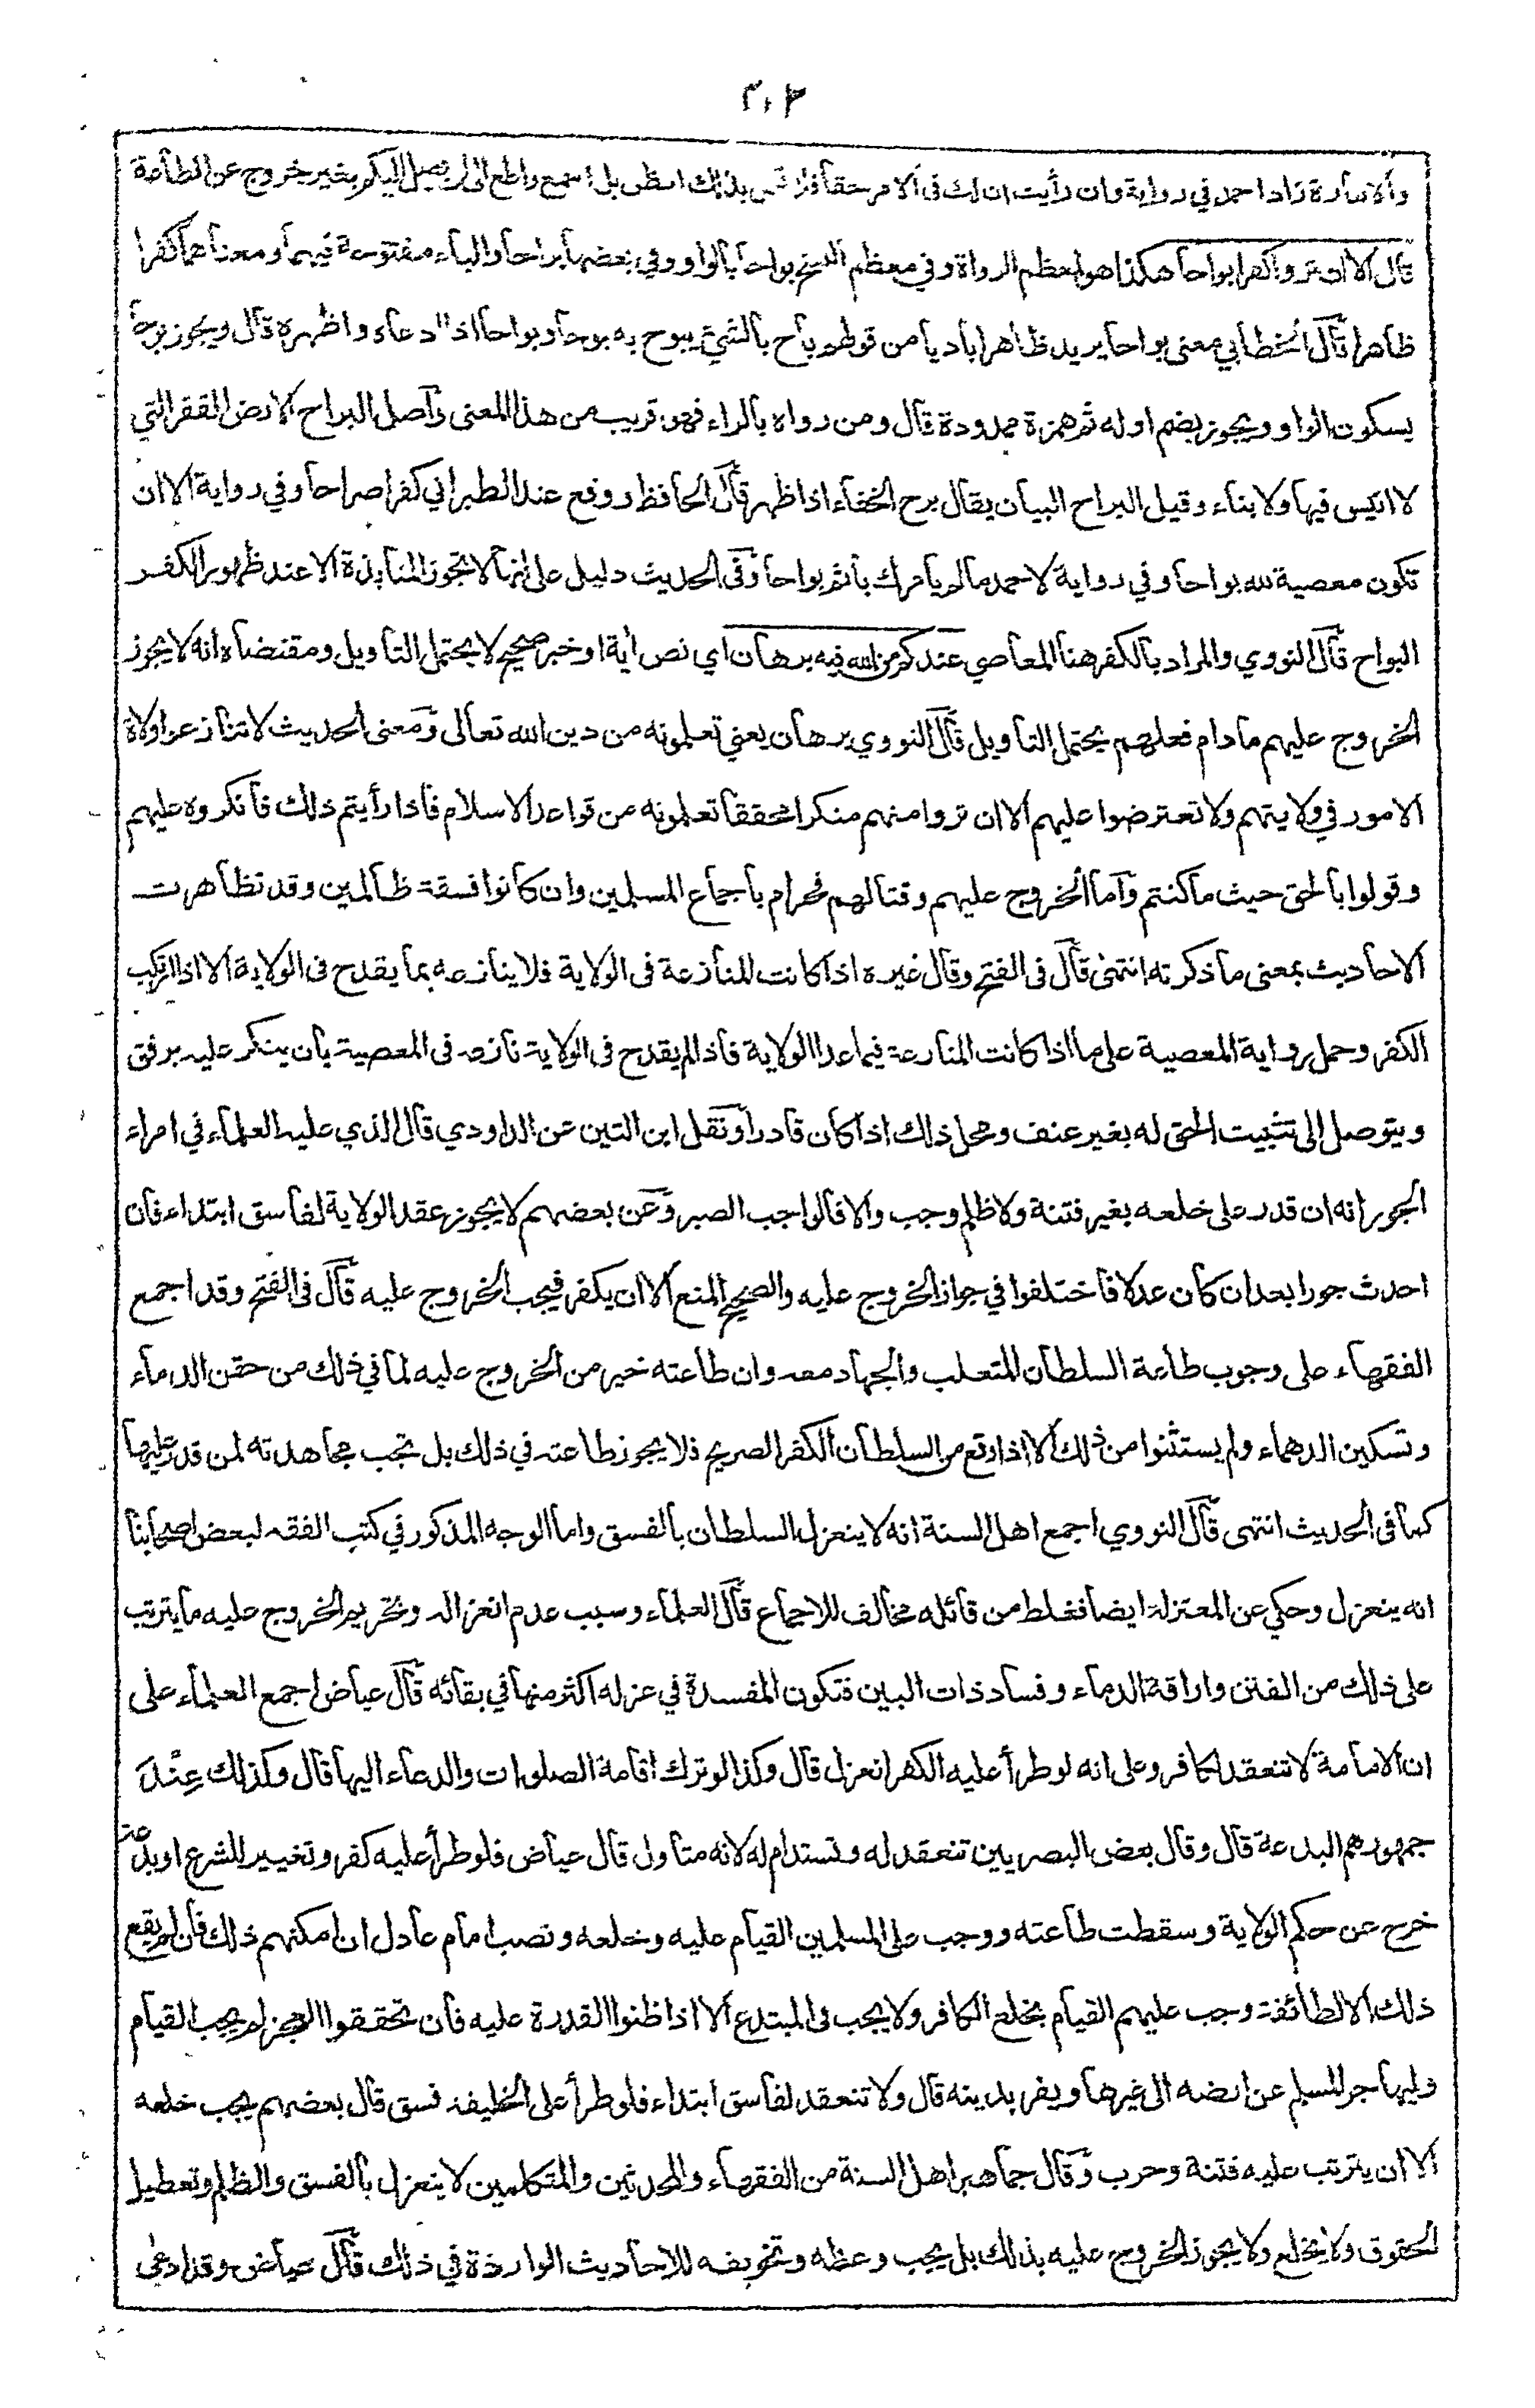 ٣٠٢
والامارة زاد احمد في رواية وان رأيت ان لك في الامر حقا فلا بذلك الظن بل اسمع واطع الى ان يصل اليكم بغير خروج عن الطاعة
قال الا ان تروا كفرا بواحا هكذا هو لمعظم الرواة وفي معظم النسخ بواحا بالواو وفي بعضها براحا والباء مفتوحة فيهما ومعناهما كفرا
ظاهرا قال الخطابي معنى بواحا يريد ظاهرا باديا من قولهم باح بالشئ يبوح به بوحا وبواحا اذا ادعاه واظهره قال ويجوز بوحا
بسكون الواو ويجوز بضم اوله ثم همزة ممدودة قال ومن رواه بالراء فهو قريب من هذا المعنى واصل البراح الارض القفر التي
لا انيس فيها ولا بناء وقيل البراح البيان يقال برح الخفاء اذا ظهر قال الحافظ ووقع عند الطبراني كفرا صراحا وفي رواية الا ان
تكون معصية لله بواحا وفي رواية لاحمد ما لم يأمرك بأثم بواحا وفي الحديث دليل على انها لا تجوز المنابذة الا عند ظهور الكفر
البواح قال النووي والمراد بالكفر هنا المعاصي عندكم من الله فيه برهان اي نص اية او خبر صحيح لا يحتمل التأويل ومقتضاه انه لا يجوز
الخروج عليهم ما دام فعلهم يحتمل التأويل قال النووي برهان يعني تعلمونه من دين الله تعالى ومعنى الحديث لا تنازعوا ولاة
الامور في ولايتهم ولا تعترضوا عليهم الا ان تروا منهم منكرا محققا تعلمونه من قواعد الاسلام فاذا رأيتم ذلك فانكروه عليهم
وقولوا بالحق حيث ما كنتم واما الخروج عليهم وقتالهم فحرام باجماع المسلمين وان كانوا فسقة ظالمين وقد تظاهرت
الاحاديث بمعنى ما ذكرته انتهى قال في الفتح وقال غيره اذا كانت المنازعة في الولاية فلا ينازعه بما يقدح في الولاية الا اذا ارتكب
الكفر وحمل رواية المعصية على ما اذا كانت المنازعة فيما عدا الولاية فاذا لم يقدح في الولاية نازعه في المعصية بان ينكر عليه برفق
ويتوصل الى تثبيت الحق له بغير عنف ومحل ذلك اذا كان قادرا ونقل ابن التين عن الداودي قال الذي عليه العلماء في امراء
الجور انه ان قدر على خلعه بغير فتنة ولا ظلم وجب والا فالواجب الصبر وعن بعضهم لا يجوز عقد الولاية لفاسق ابتداء فان
احدث جورا بعد ان كان عدلا فاختلفوا في جواز الخروج عليه والصحيح المنع الا ان يكفر فيجب الخروج عليه قال في الفتح وقد اجمع
الفقهاء على وجوب طاعة السلطان المتغلب والجهاد معه وان طاعته خير من الخروج عليه لما في ذلك من حقن الدماء
وتسكين الدهماء ولم يستثنوا من ذلك الا اذا وقع من السلطان الكفر الصريح فلا يجوز طاعته في ذلك بل تجب مجاهدته لمن قدر عليها
كما في الحديث انتهى قال النووي اجمع اهل السنة انه لا ينعزل السلطان بالفسق واما الوجه المذكور في كتب الفقه لبعض اصحابنا
انه ينعزل وحكي عن المعتزلة ايضا فغلط من قائله مخالف للاجماع قال العلماء وسبب عدم انعزاله وتحريم الخروج عليه ما يترتب
على ذلك من الفتن واراقة الدماء وفساد ذات البين فتكون المفسدة في عزله اكثر منها في بقائه قال عياض اجمع العلماء على
ان الامامة لا تنعقد لكافر وعلى انه لو طرأ عليه الكفر انعزل قال وكذا لو ترك اقامة الصلوات والدعاء اليها قال وكذلك عِنْدَ
جمهورهم البدعة قال وقال بعض البصريين تنعقد له وتستدام له لانه متأول قال عياض فلو طرأ عليه كفر وتغيير للشرع او بدعة
خرج عن حكم الولاية وسقطت طاعته ووجب على المسلمين القيام عليه وخلعه ونصب امام عادل ان امكنهم ذلك فان لم يقع
ذلك الا لطائفة وجب عليهم القيام بخلع الكافر ولا يجب في المبتدع الا اذا ظنوا القدرة عليه فان تحققوا العجز لم يجب القيام
وليهاجر المسلم عن ارضه الى غيرها ويفر بدينه قال ولا تنعقد لفاسق ابتداء فلو طرأ على الخليفة فسق قال بعضهم يجب خلعه
الا ان يترتب عليه فتنة وحرب وقال جماهير اهل السنة من الفقهاء والمحدثين والمتكلمين لا ينعزل بالفسق والظلم وتعطيل
الحقوق ولا يخلع ولا يجوز الخروج عليه بذلك بل يجب وعظه وتخويفه للاحاديث الواردة في ذلك قال عياض وقد ادعى